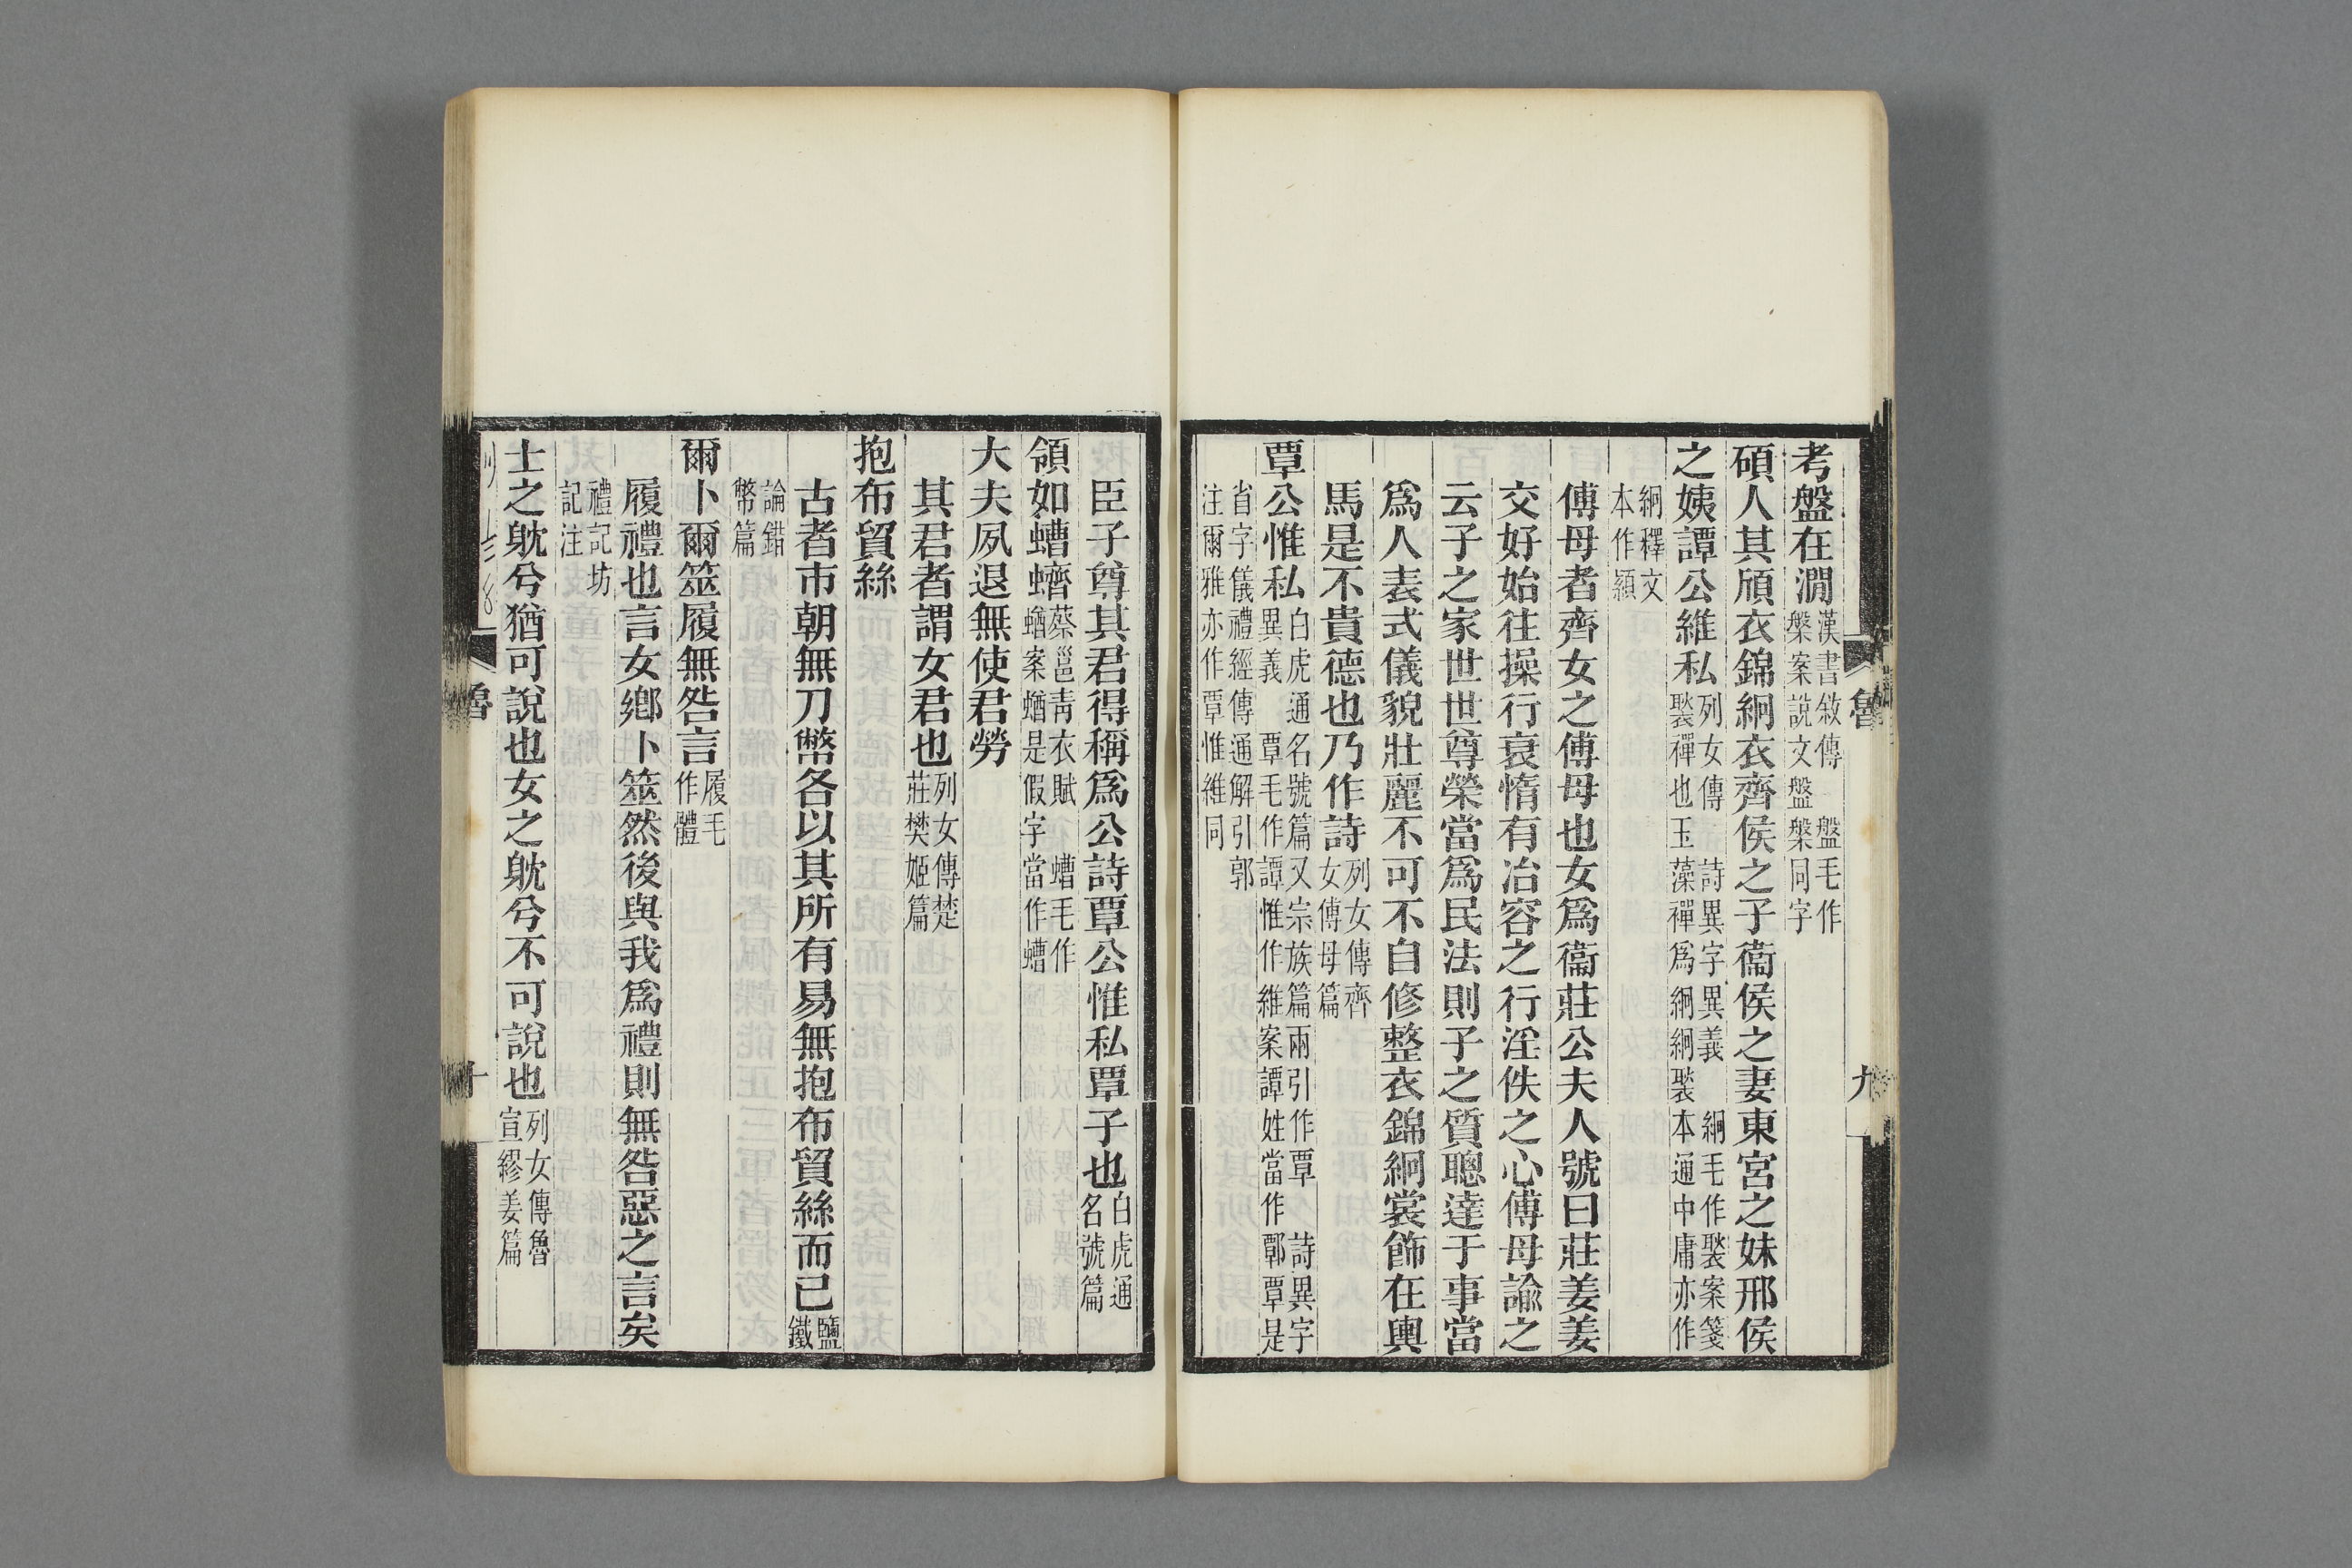 考盤在澗漢書敘傳　盤毛作
槃案說文盤槃同字
碩人其頎衣錦絅衣齊侯之子衞侯之妻東宮之妹邢侯
之姨譚公維私列女傳　詩異字異義　絅毛作褧案箋
褧襌也玉藻襌爲絅絅褧本通中庸亦作
絅釋文
本作顈
傅母者齊女之傅母也女爲衞莊公夫人號曰莊姜姜
交好始往操行衰惰有冶容之行淫佚之心傅母諭之
云子之家世世尊榮當爲民法則子之質聰達于事當
爲人表式儀貌壯麗不可不自修整衣錦絅裳飾在輿
馬是不貴德也乃作詩列女傳齊
女傅母篇
覃公惟私白虎通名號篇又宗族篇兩引作覃　詩異字
異義　覃毛作譚惟作維案譚姓當作鄲覃是
省字儀禮經傳通解引郭
注爾雅亦作覃惟維同
魯
九
臣子尊其君得稱爲公詩覃公惟私覃子也白虎通
名號篇
領如螬蠐蔡邕靑衣賦　螬毛作
蝤案蝤是假字當作螬
大夫夙退無使君勞
其君者謂女君也列女傳楚
莊樊姬篇
抱布貿絲
古者市朝無刀幣各以其所有易無抱布貿絲而已鹽
鐵
論錯
幣篇
爾卜爾筮履無咎言履毛
作體
履禮也言女鄕卜筮然後與我爲禮則無咎惡之言矣
禮記坊
記注
士之躭兮猶可說也女之躭兮不可說也列女傳魯
宣繆姜篇
魯
十